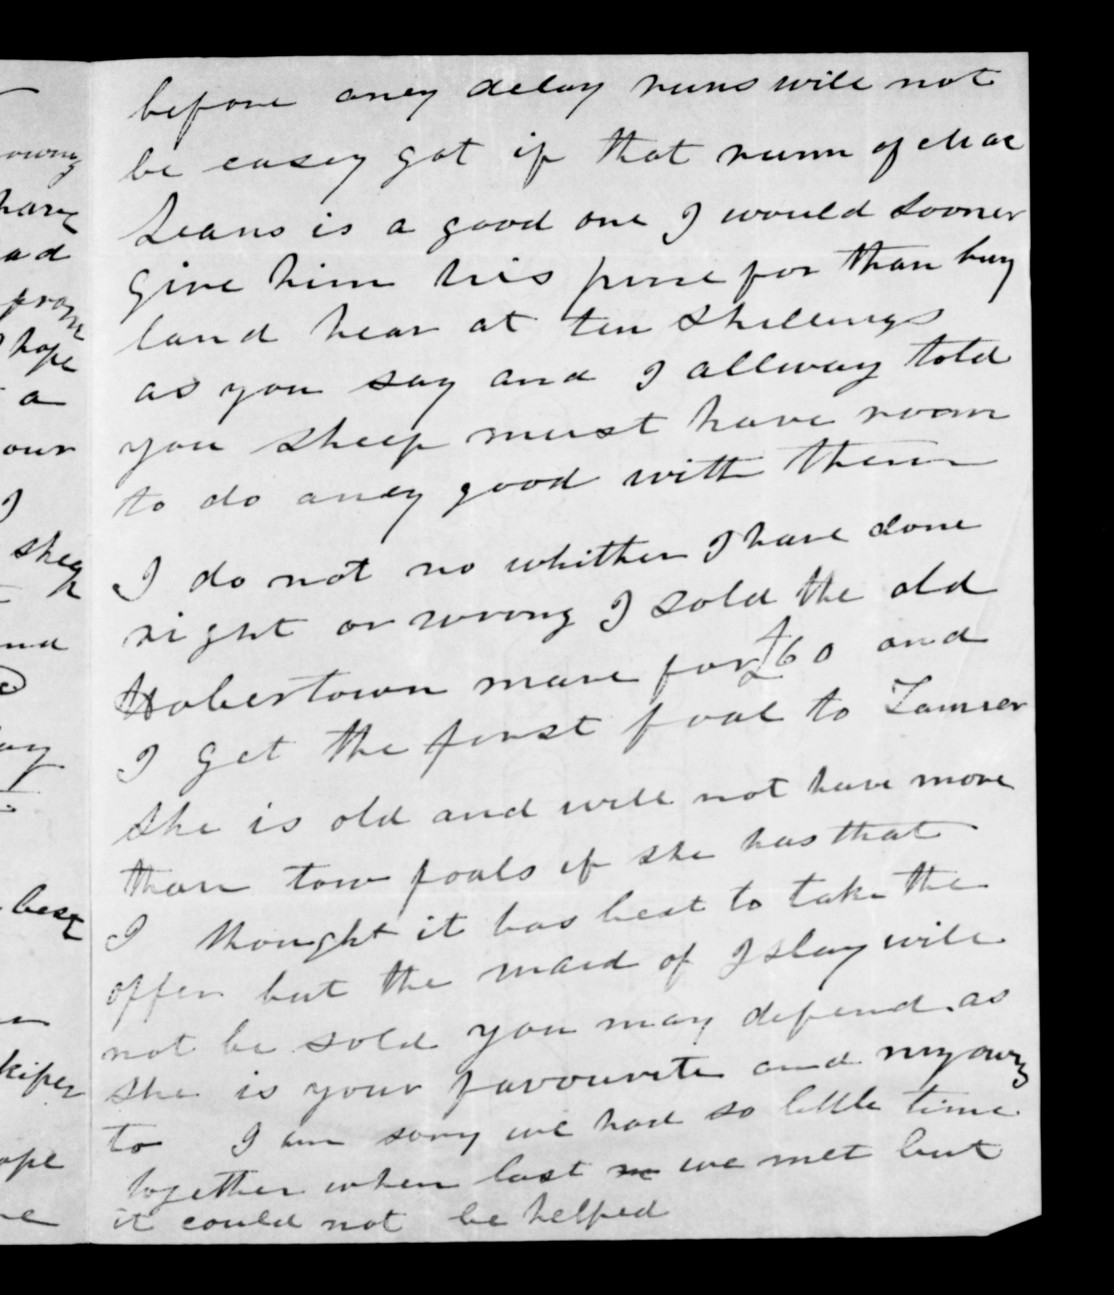 before aney delay runs will not
be easey got if that runn of Mac
Leans is a good one I would sooner
give him his prise for than buy
land hear at ten shillings
as you say and I allway told
you sheep must have room
to do aney good with them
I do not no whither I have done
right or wrong I sold the old
Hobertown mare for £60 and
I get the first foal to
she is old and will not have more
than tow foals if she has that
I thought it bas best to take the
offer but the maid of Islay will
not be sold you may depend as
she is your favourite and my own
to I am sory we had so little time
together when last we met but
it could not be helped
owny
have
ad
from
hope
a
our
I
sheep
and
ay
best
ope